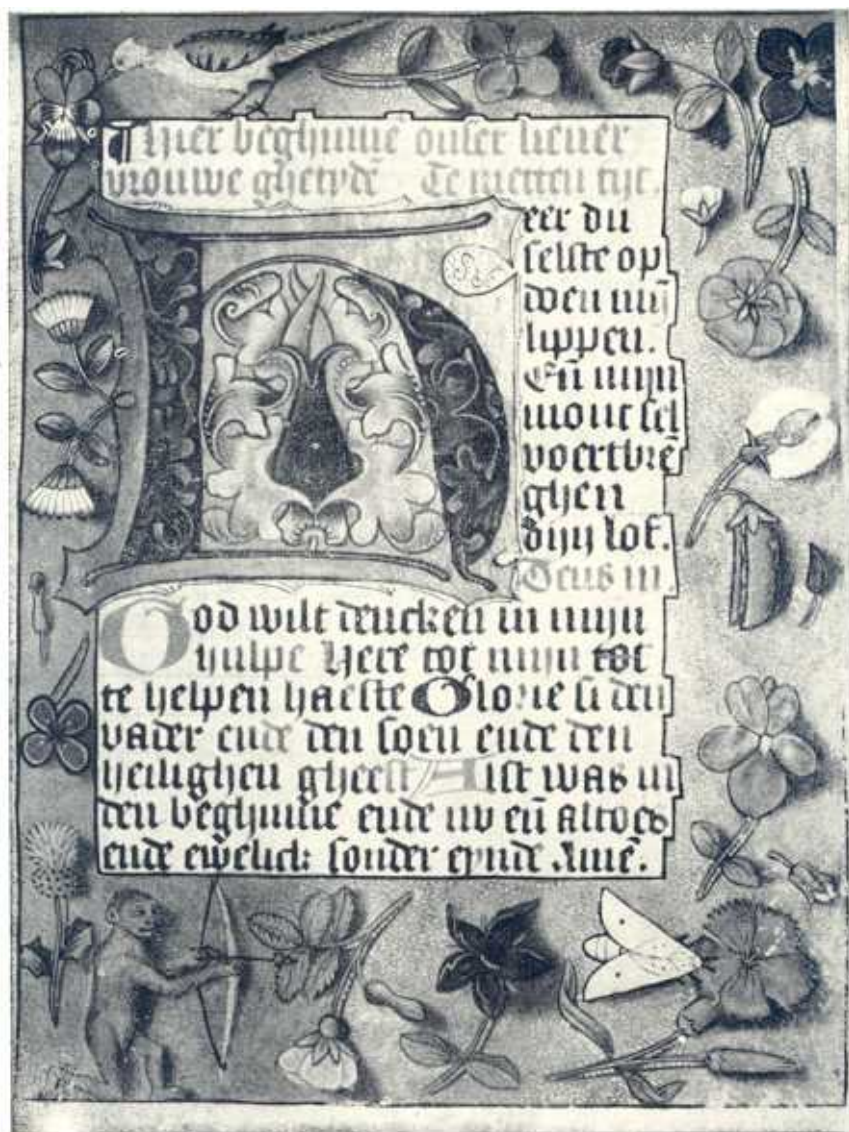 Hier beghinnē onser liever
vrouwe ghetydē Te metten tijt.
Heer du
selste op
doen mijn
lippen.
Eñ mijn
mont sel
voertbrē
ghen
dijn lof.
Deus in.
God wilt dencken in mijn
hulpe Here tot mijn tot
te helpen haeste Glorie si den
vader ende den soen ende den
heilighen gheest Alst was in
den beghinne ende nv eñ altoes
ende ewelick sonder eynde Amē.